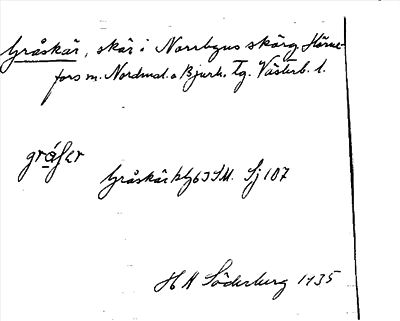 Gråskär, skär i Norrbyns skärg. Hörne-
fors m. Nordmal. o Bjurh. tg. Västerb. l.
Gråskär 63 SM. Sj 107
H Söderberg 1935